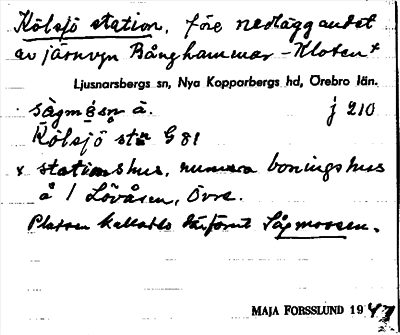 Kölsjö station, före nedläggandet
av järnvgn Bånghammar - Kloten x
Ljusnarsbergs sn, Nya Kopparbergs hd, Örebro län.
sågmósn å. j 210
Kölsjö stn G 81
x stationshus, numera boningshus
å 1 Lövåsen, Övre.
Platsen kallades därförut Sågmossen.
MAJA FORSSLUND 1947